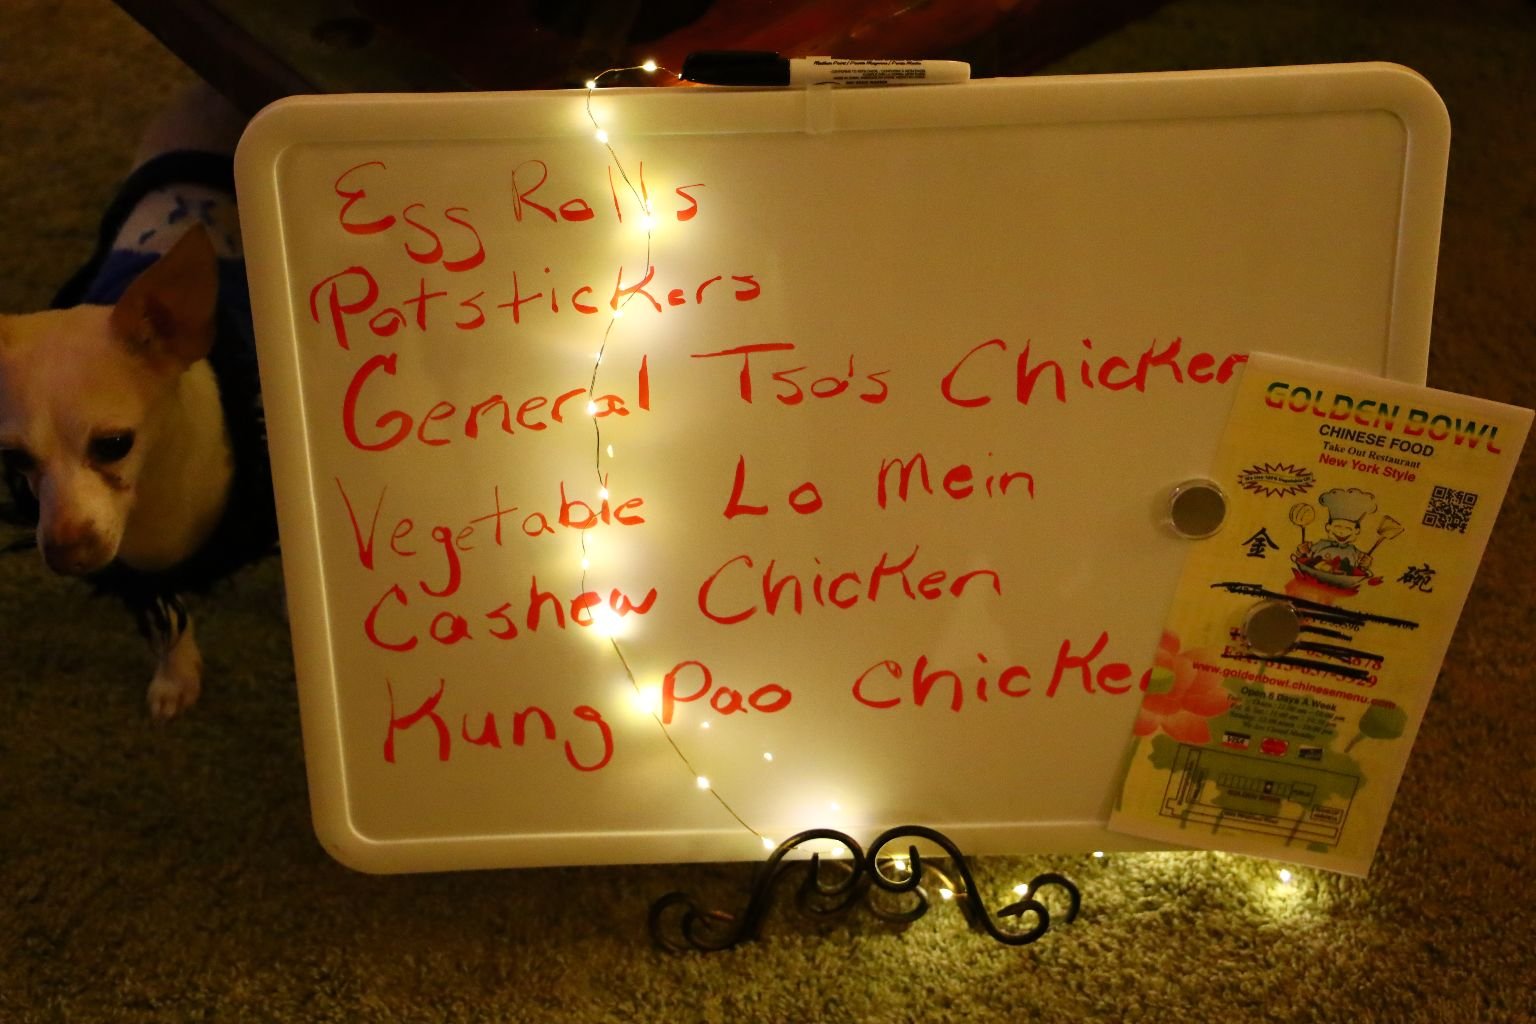 Medium Point / Punta Mediana / Pointe Moyenne
Egg Rolls
Potstickers
General Tso's Chicken
Vegetable Lo Mein
Cashew Chicken
Kung Pao Chicken
GOLDEN BOWL
CHINESE FOOD
Take Out Restaurant
New York Style
金
碗
www.goldenbowl.chinesemenu.com
Open 6 Days A Week
VISA